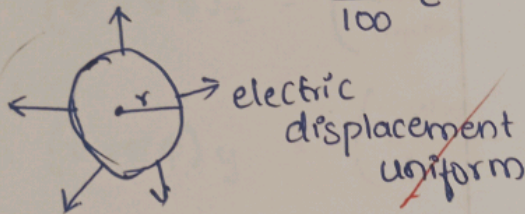 100
r
electric
displacement
uniform